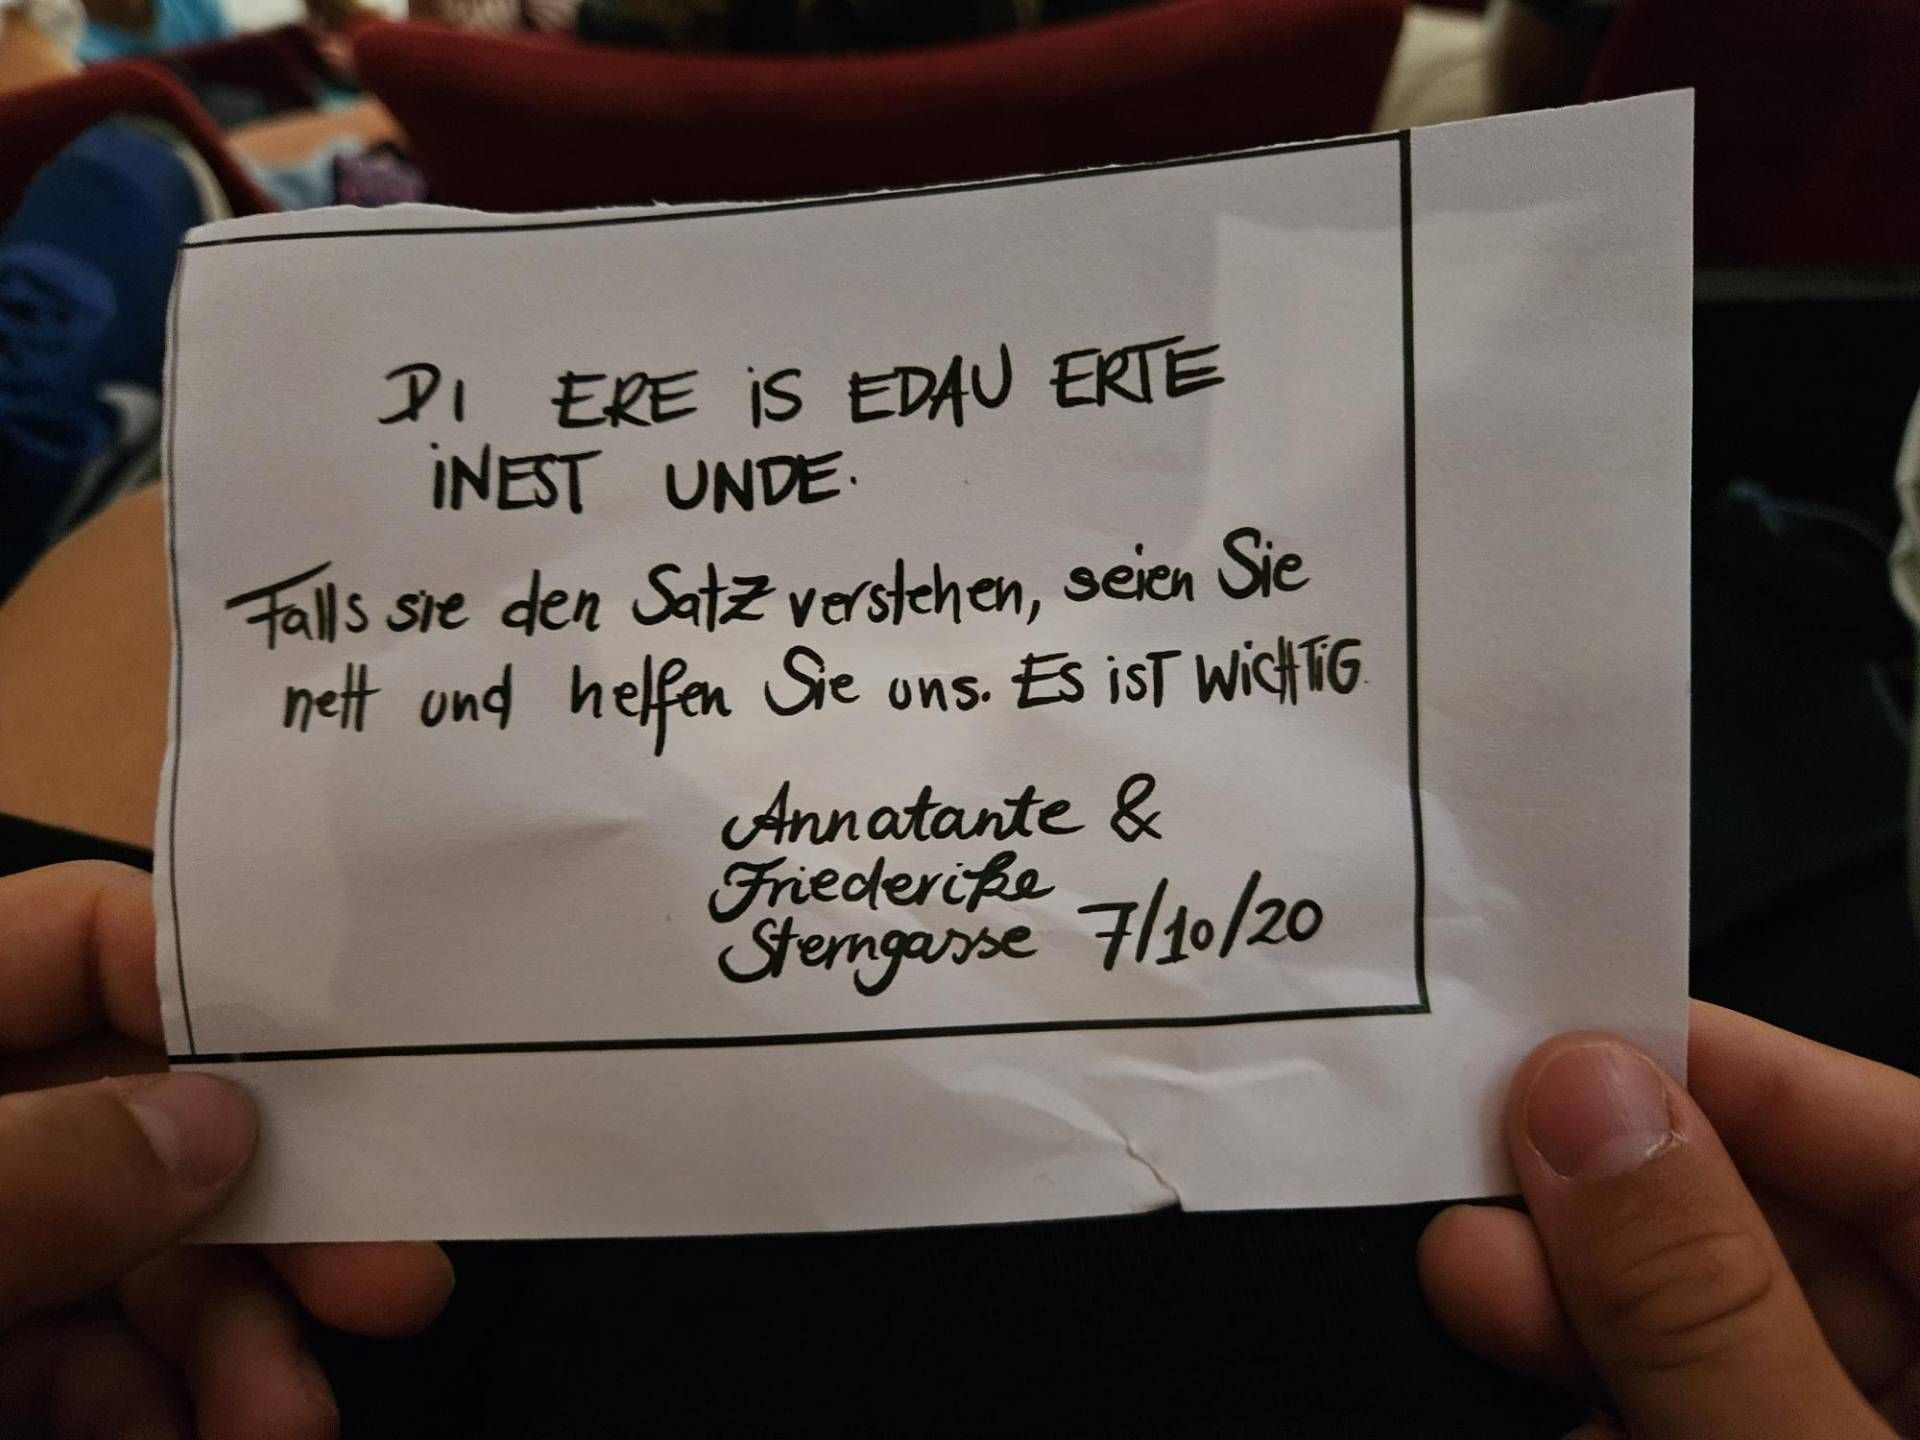 DI ERE iS EDAU ERTE
iNEST UNDE.
Falls sie den Satz verstehen, seien Sie
nett und helfen Sie uns. Es isT WiCHTiG
Annatante &
Friederike
Sterngasse 7/10/20